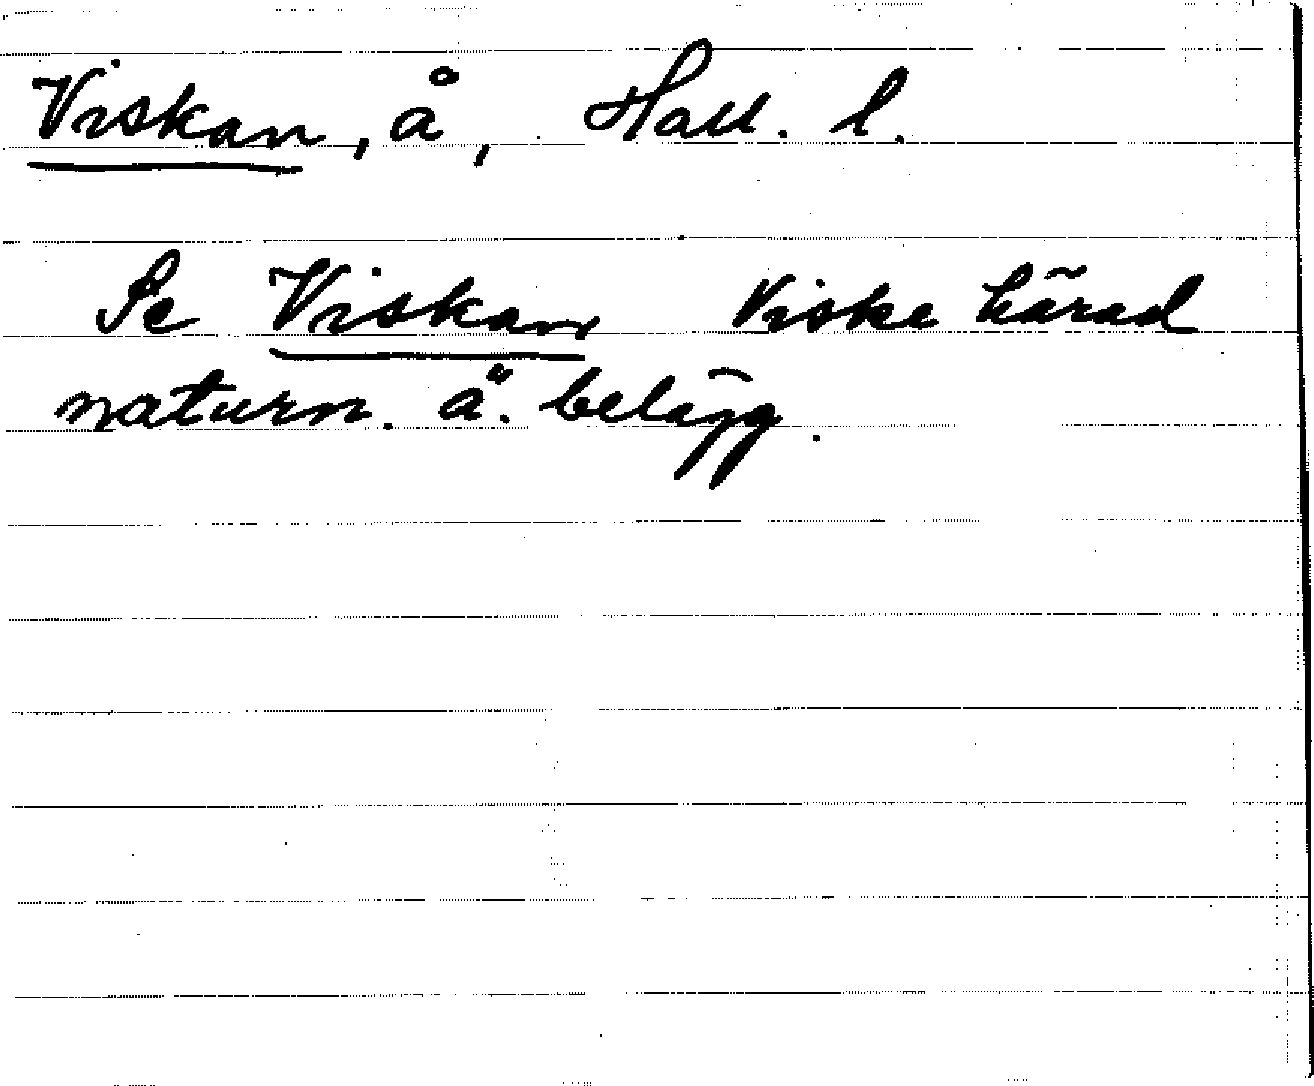 Viskan, å, Hall. l.
Se Viskan Viske härad
naturn. ä. belägg.